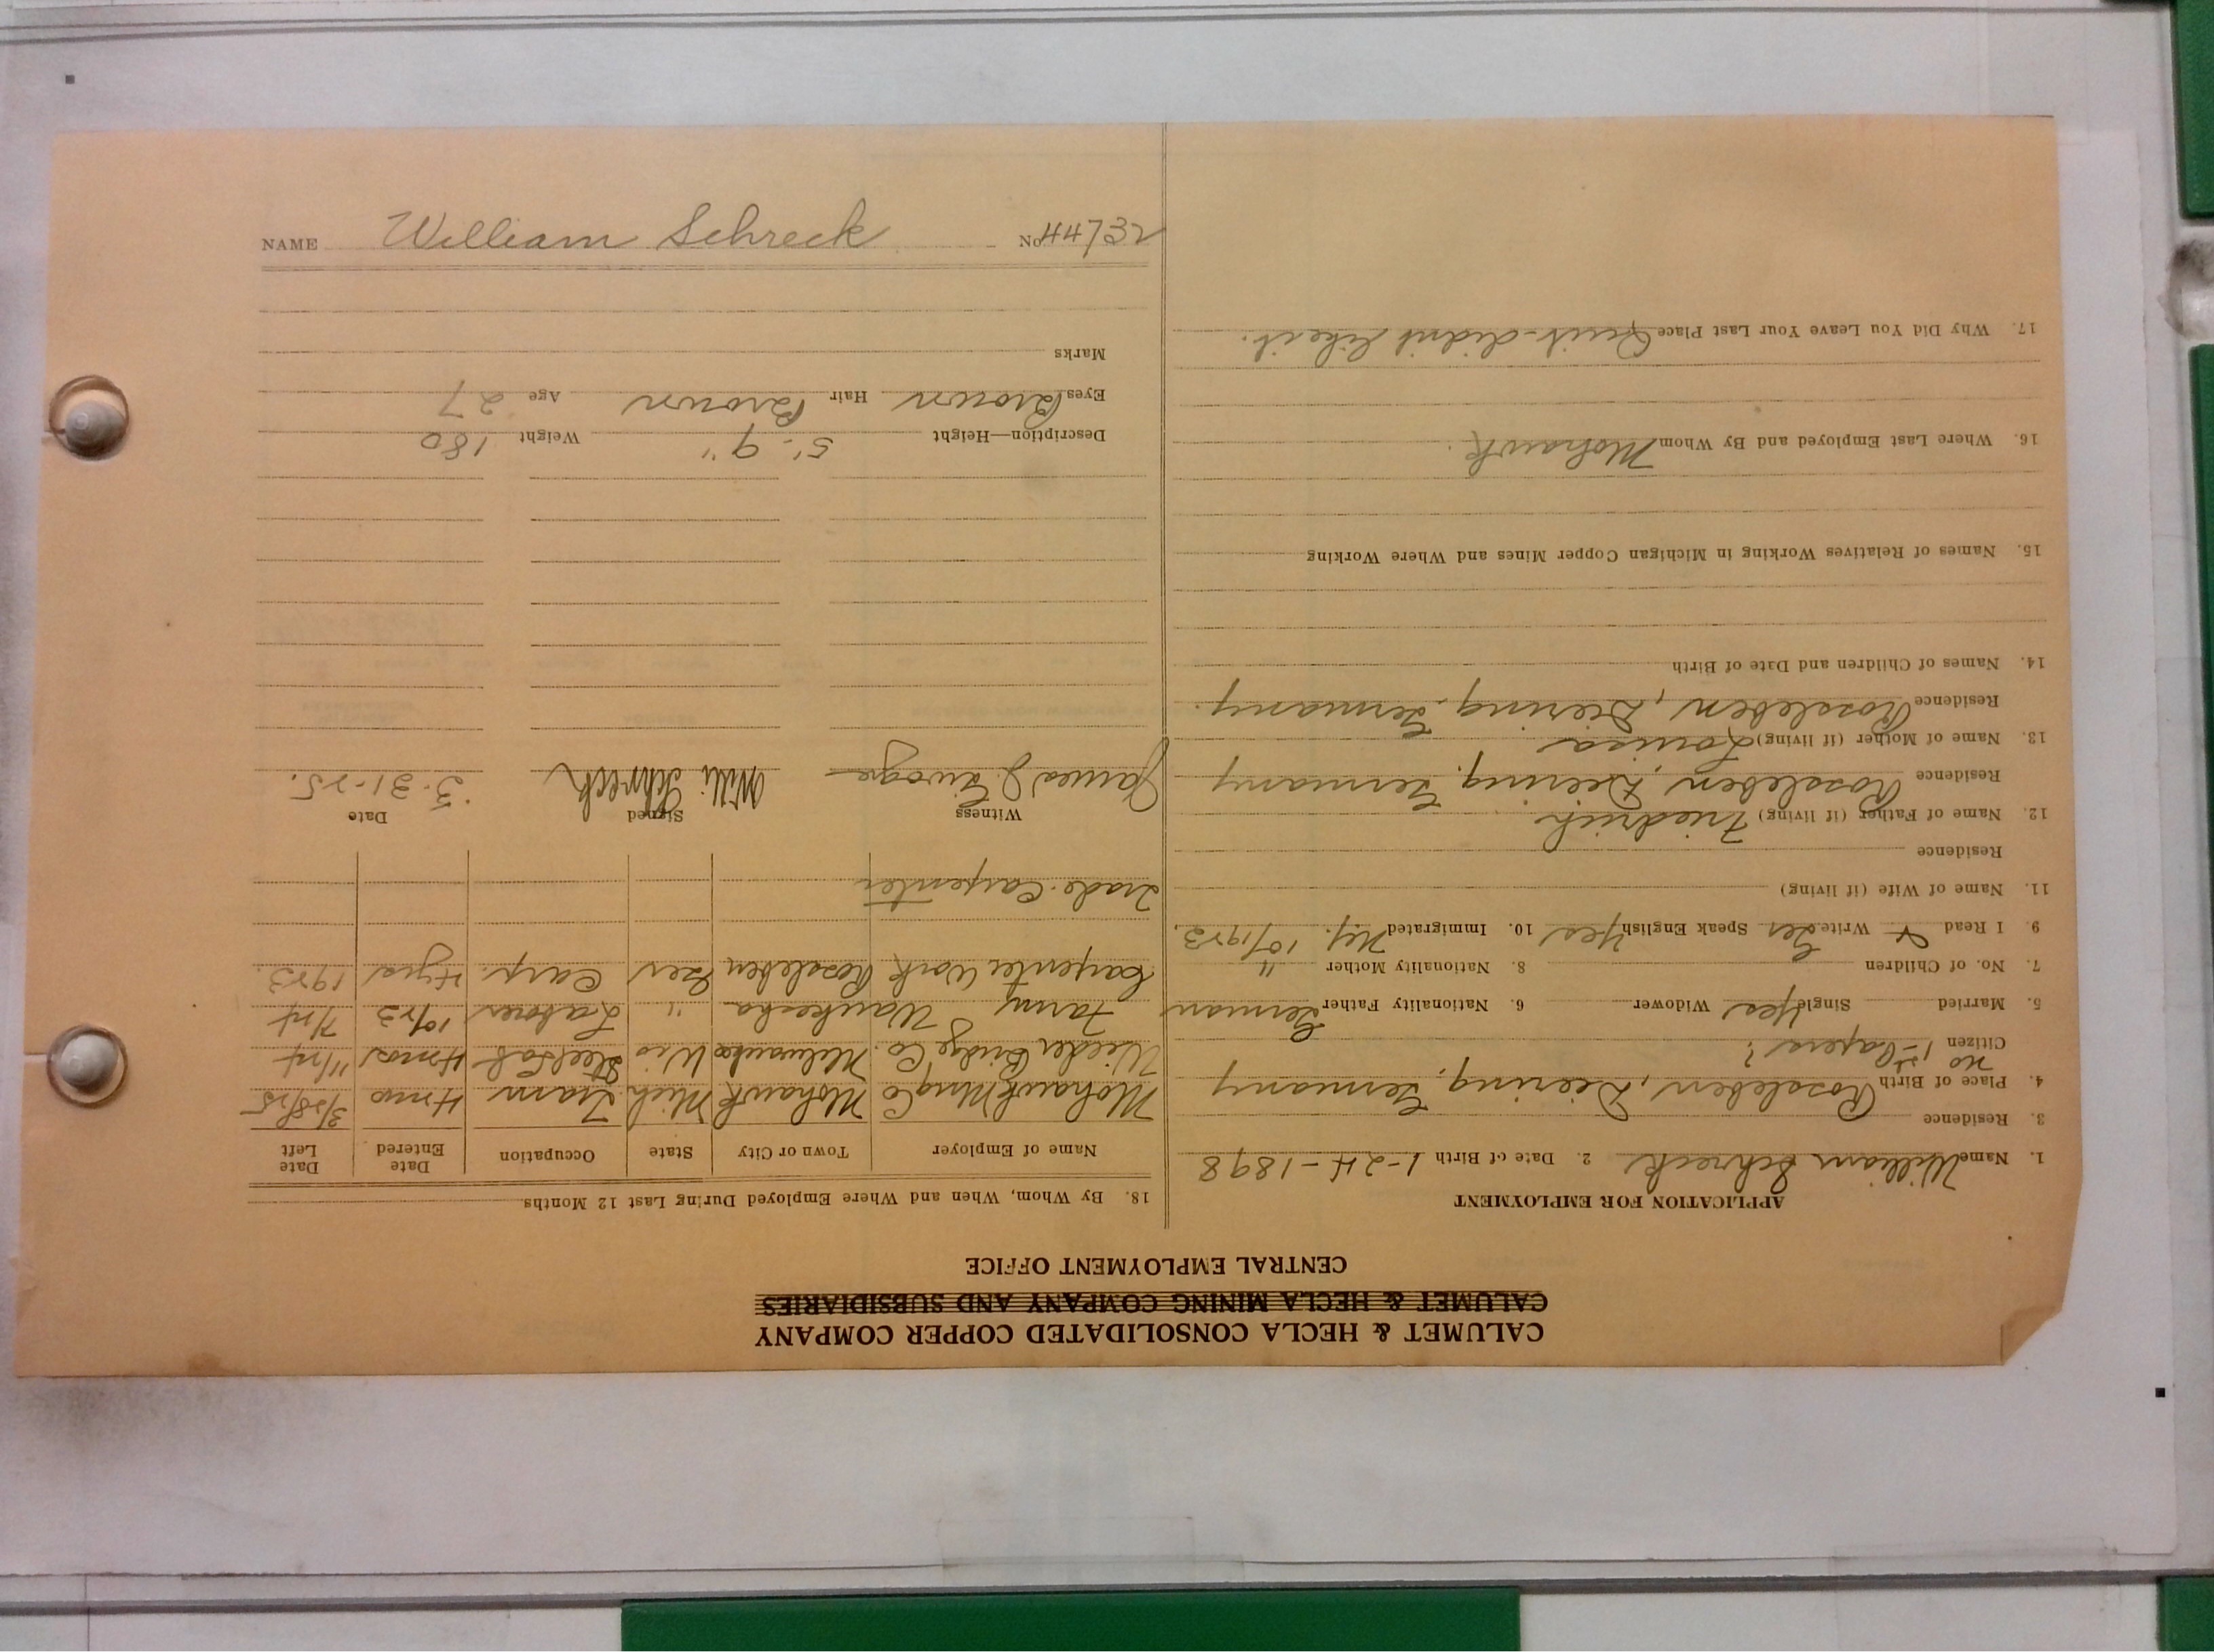 CALUMET & HECLA CONSOLIDATED COPPER COMPANY
CALUMET & HECLA MINING COMPANY AND SUBSIDIARIES
CENTRAL EMPLOYMENT OFFICE
APPLICATION FOR EMPLOYMENT
1. Name William Schreck 2. Date of Birth 1-24-1898
3. Residence
4. Place of Birth Rossleben, Diering, Germany
Citizen no 1st Papers?
5. Married Single Yes Widower 6. Nationality Father German
7. No. of Children 8. Nationality Mother "
9. I Read & Write Ger Speak English Yes 10. Immigrated N.Y. 10/1923
11. Name of Wife (if living)
Residence
12. Name of Father (if living) Friedrich
Residence Rossleben, Diering, Germany
13. Name of Mother (if living) Louisa
Residence Rossleben, Diering, Germany.
14. Names of Children and Date of Birth
15. Names of Relatives Working in Michigan Copper Mines and Where Working
16. Where Last Employed and By Whom Mohawk.
17. Why Did You Leave Your Last Place Quit-didn't like it.
18. By Whom, When and Where Employed During Last 12 Months
Name of Employer Town or City State Occupation Date Entered Date Left
Mohawk Mng Co Mohawk Mich. Tram 4 mos 3/28/25
Bridge Co. Milwaukee Wis Steel Lab 4 mos 11/24
Farm Waukesha " Laborer 10/23 7/24
Carpenter Work Rossleben Ger Carp. 4 yrs 1923.
Trade-Carpenter
Witness Signed Date
James J. Willi Schreck 3-31-25.
Description—Height 5'-9" Weight 180
Eyes Brown Hair Brown Age 27
Marks
NAME William Schreck No. 44732